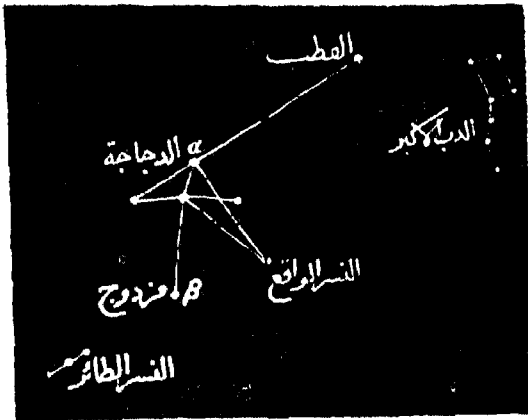 القطب
الدب الأكبر
الدجاجة α
النسر الواقع
β مزدوج
النسر الطائر